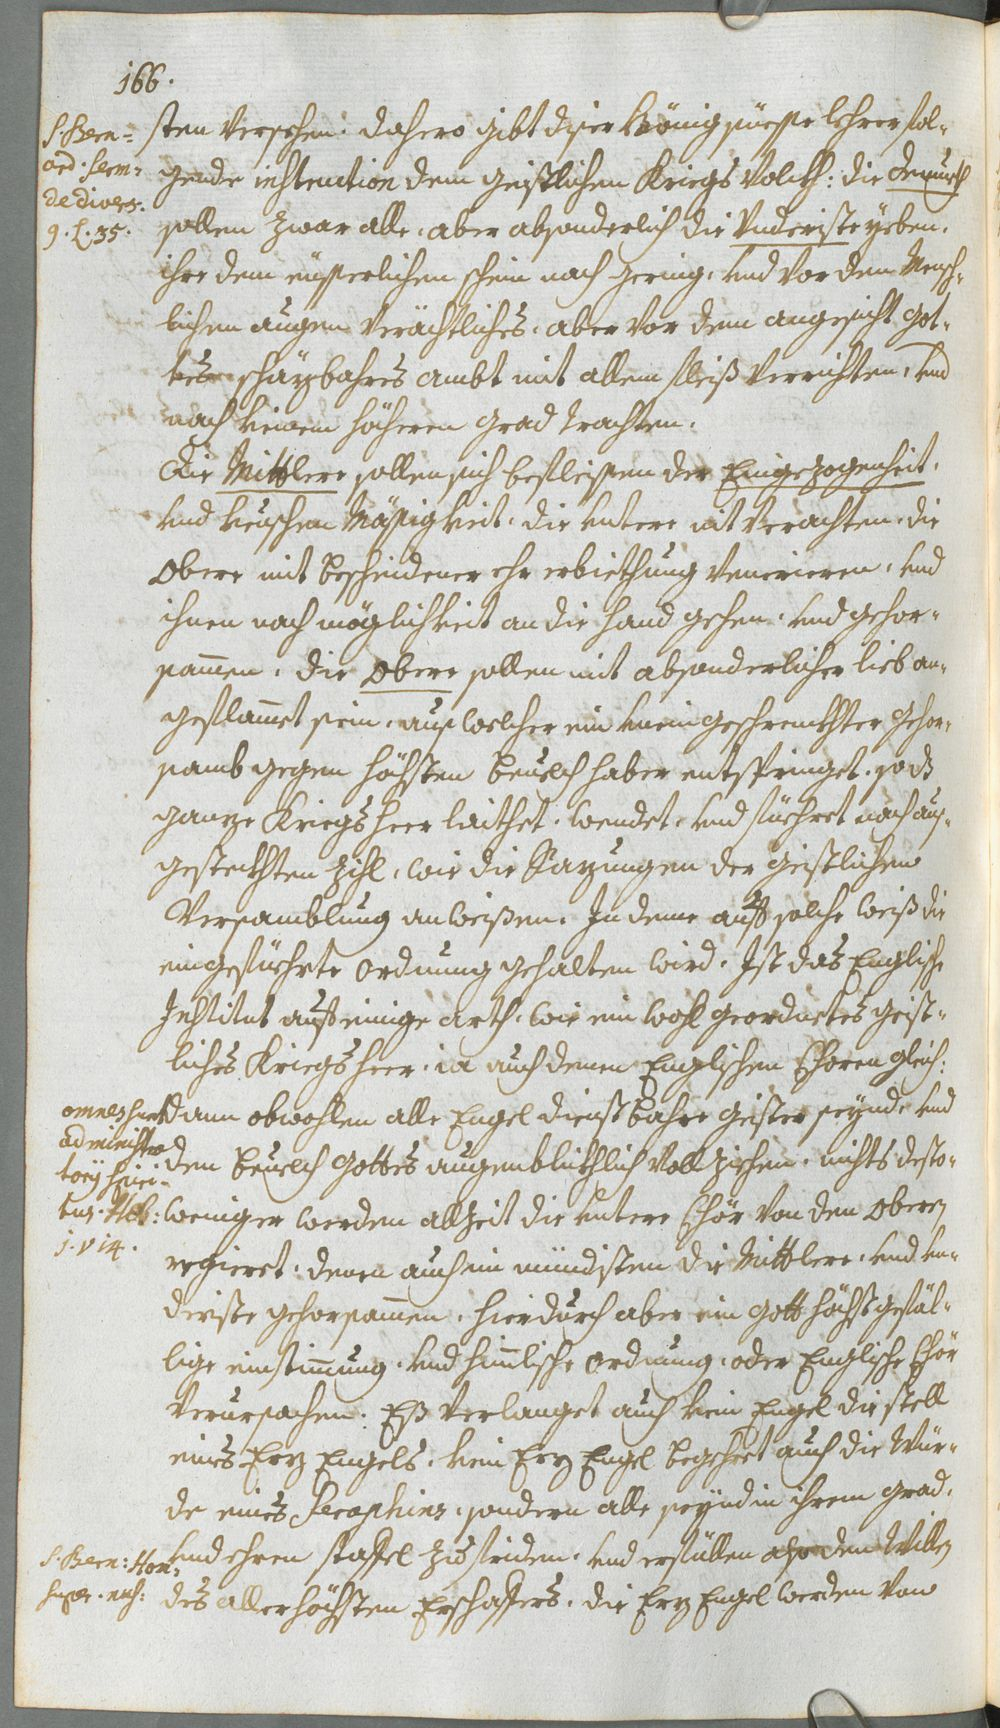 166.
S. Bern=
ard. Serm=
de divers.
9. l. 35.
sten versehen. dahero gibt diser Hönigsüesse lehrer fol=
gende instruction dem geistlichen Kriegs Volckh: die demueth
sollen zwar alle, aber absonderlich die Underiste yeben,
ihre dem eüsserlichen schein nach gering, und vor den Mensch=
lichen augen verächtliches, aber vor dem angesicht Got=
tes schäzbahres ambt mit allem fleiß verrichten, und
nach keinem höheren grad trachten.
Die Mittlere sollen sich befleissen der Eingezogenheit,
und keuschen Mässigkeit, die untere nit verachten, die
Obere mit bescheidener ehrerbiethung venerieren, und
ihnen nach möglichkeit an die hand gehen, und gehor=
sammen. die Obere sollen mit absonderlicher lieb an=
geflammet sein, aus welcher ein uneingeschrenckhter gehor=
samb gegen höchsten beuelch haber entspringet, so dß
ganze Kriegsheer laithet, wendet, und füehret nach aus=
gesteckhten Zihl, wie die Sazungen der geistlichen
Versamblung anweißen. In deme auff solche weiß die
eingefüehrte ordnung gehalten wird, Ist das Englische
Institut auff einige arth, wie ein wohl geordnetes geist=
liches Kriegsheer, ia auch denen Englischen Choren gleich:
omnes sunt
administra
torij spiri=
tus. Heb:
1. v 14.
dann obwohlen alle Engel dienstbahre geister seynd, und
den beuelch Gottes augenblickhlich vollziehen, nichts desto=
weniger werden allzeit die untere Chör von den Obern
regieret, denen auch im mündisten die Mittlere, und un=
deriste gehorsammen, hierdurch aber ein gott höchst gefäl=
lige einstimmung, und himlische ordnung, oder Englische Chör
verursachen. Eß verlanget auch kein Engel die stell
eines Erz Engels, kein Erz Engel begehret auch die Wür=
de eines Seraphins, sondern alle seynd in ihrem grad,
S. Bern: Hom:
super. ech:
und ehren staffel zu friden, und erfüllen also den Willen
des allerhöchsten Erschaffers. die Erz Engel werden von